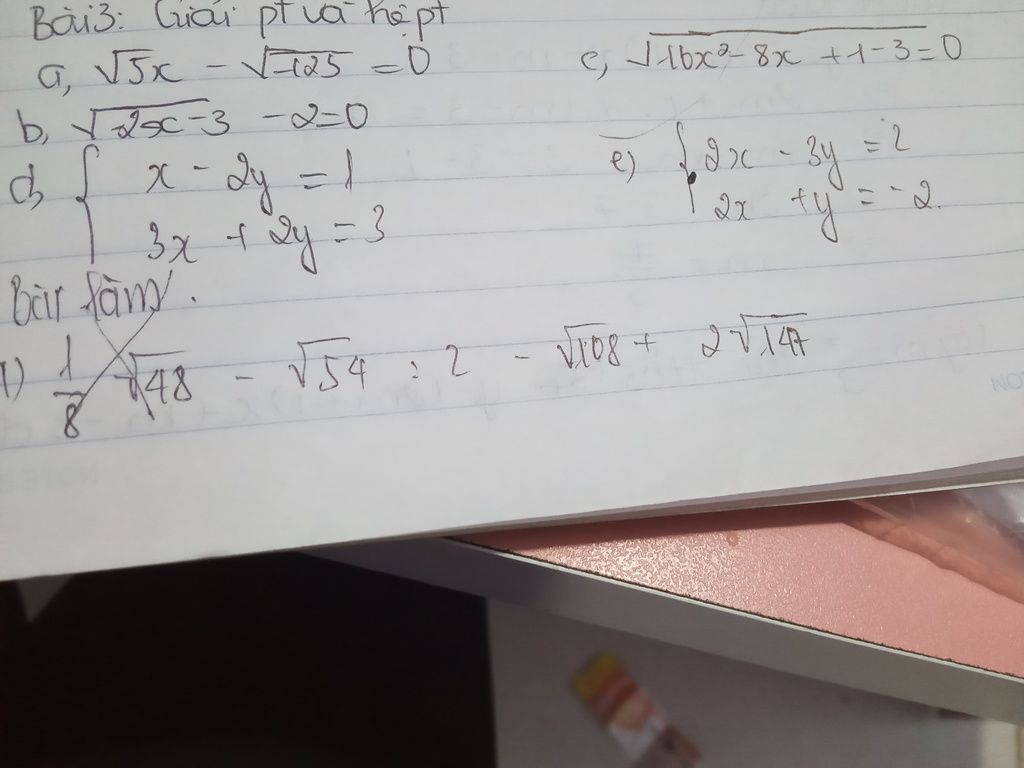 Bài 3: Giải pt và hệ pt
a, √5x - √125 = 0
c, √16x² - 8x + 1 - 3 = 0
b, √2x-3 - 2 = 0
d, { x - 2y = 1
3x + 2y = 3
e) { 2x - 3y = 2
2x + y = -2.
Bài làm.
1) 1/8 √48 - √54 : 2 - √108 + 2√147